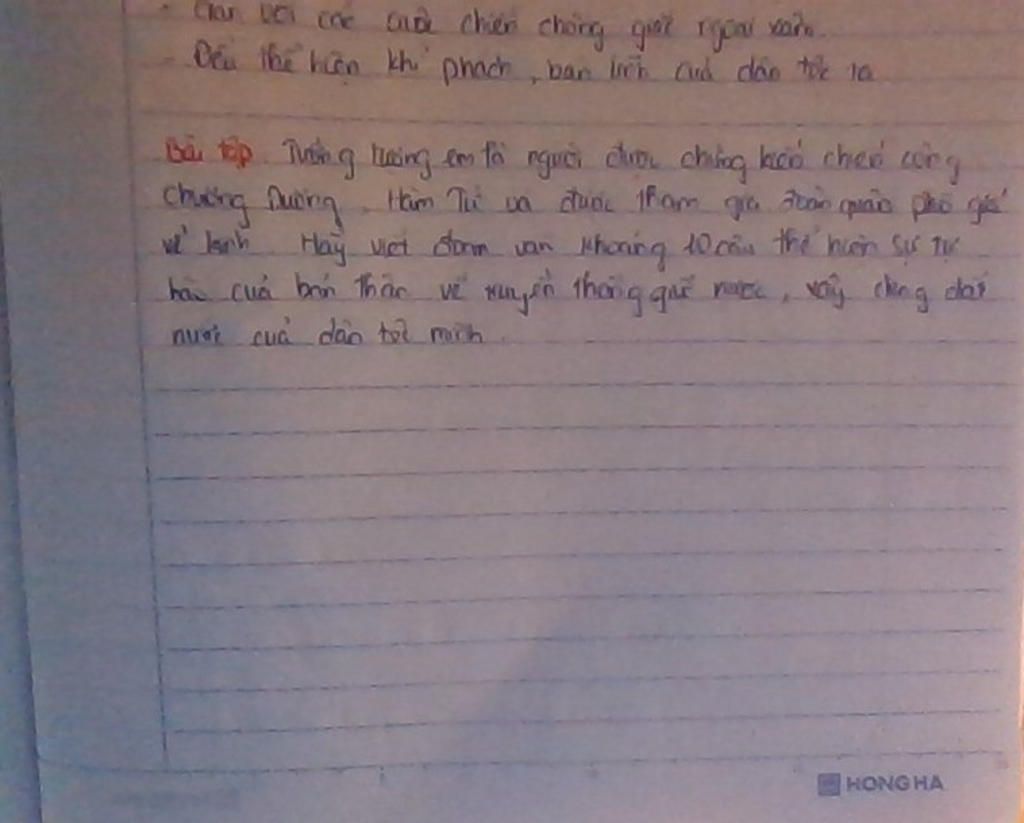 - Gắn với các cuộc chiến chống giặc ngoại xâm.
- Đều thể hiện khí phách, bản lĩnh của dân tộc ta
Bài tập. Tưởng tượng em là người được chứng kiến chiến công
Chương Dương, Hàm Tử và được tham gia đoàn quân phò giá
về kinh. Hãy viết đoạn văn khoảng 10 câu thể hiện sự tự
hào của bản thân về truyền thống giữ nước, xây dựng đất
nước của dân tộc mình.
HONG HA